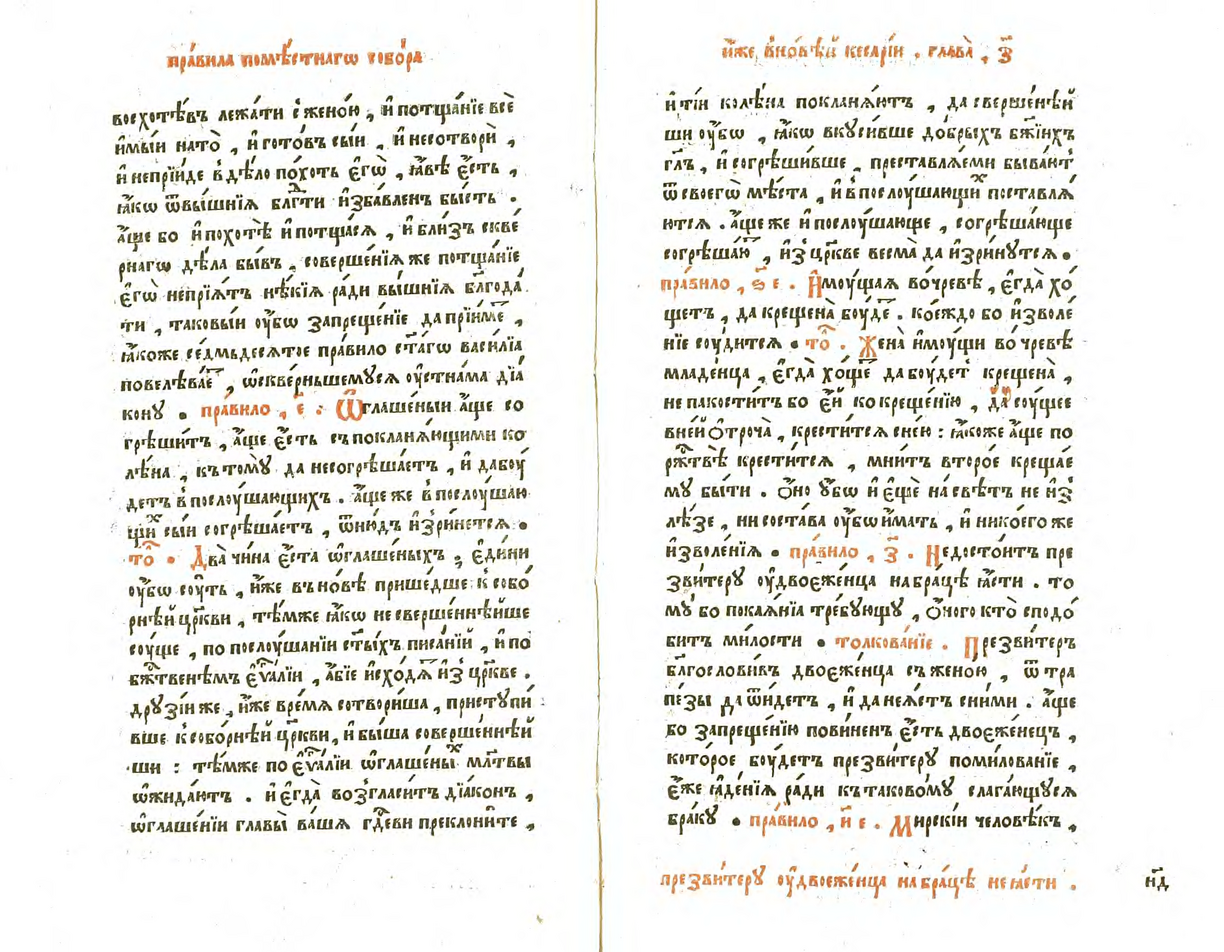 пра́вила помѣ́стнагѡ собо́ра
восхотѣ́въ лежа́ти с̾жено́ю , и҆ потща́нїе всѐ
и҆мы́и нато̀ , и҆ гото́въ сы́и , и҆ несотворѝ ,
и҆ непрїи́де в̾дѣ́ло по́хоть є҆гѡ̀ , ꙗ҆́вѣ є҆́сть ,
ꙗ҆́кѡ ѿвы́шнїѧ бл҃гⷣти и҆зба́вленъ бы́сть .
а҆́ще бо и҆ похотѣ̀ и҆ потща́сѧ , и҆ бли́зъ скве
рнагѡ дѣ́ла бы́въ , соверше́нїѧ же потща́нїе
є҆гѡ̀ непрїѧ́тъ нѣ́кїѧ ра́ди вы́шнїѧ бл҃года́
ти , таковы́и ᲂу҆́бѡ запреще́нїе да прїи́меⷮ ,
ꙗ҆́коже се́дмьдесѧтое пра́вило ст҃а́гѡ васи́лїа
повелѣва́еⷮ , ѡ҆скве́рньшемꙋсѧ ᲂу҆стна́ма дїа́
конꙋ . пра́вило , є҃ . Ѡ҆глаше́ныи а҆́ще со
грѣши́тъ , а҆́ще є҆́сть съ покланѧ́ющими ко
лѣ́на , къ томꙋ̀ да несогрѣша́етъ , и҆ дабоу́
детъ в̾послоушающихъ . а҆́ще же в̾послоу́шаю
щиⷯ сы́и согрѣша́етъ , ѿню́дъ и҆зри́нетсѧ .
то́ⷧ . Два̀ чи́на є҆́ста ѡ҆глаше́ныхъ ; є҆ди́ни
ᲂу҆́бѡ соу́ть , и҆́же въ но́вѣ прише́дше к̾ собо́
рнѣй цр҃кви , тѣ́мже ꙗ҆́кѡ не сверше́ннѣйше
соу́ще , по послоуша́нїи ст҃ы́хъ писа́нїй , и҆ по
бжⷭ҇твенѣмъ є҆ѵⷢ҇а́лїи , а҆́бїе и҆схо́дѧⷮ и҆з̾ цр҃кве .
дрꙋзі́и же , и҆́же вре́мѧ сотвори́ша , пристꙋпи́
вше к̾собо́рнѣй цр҃кви , и҆ бы́ша соверше́ннѣй
ши : тѣ́мже по є҆ѵⷢ҇а́лїи ѡ҆глаше́ныⷯ мл҃твы
ѡ҆жида́ютъ . и҆ є҆гда̀ возгласи́тъ дїа́конъ ,
ѡ҆глаше́нїи главы̀ ва́шѧ гдⷭ҇еви преклони́те ,
и҆́же , в̾но́вѣй кесарі́и . глава̀ , з҃
и҆ ті́и колѣ́на покланѧ́ютъ , да сверше́нѣй
ши ᲂу҆́бѡ , ꙗ҆́кѡ вкꙋси́вше до́брыхъ бж҃їихъ
гл҃ъ , и҆ согрѣши́вше , преставлѧ́еми быва́юⷮ
ѿ своегѡ̀ мѣ́ста , и҆ в̾послоу́шающиⷯ поставлѧ́
ютсѧ . а҆́ще же и҆ послоу́шающе , согрѣша́юще
согрѣша́юⷮ , и҆з̾ цр҃кве весма̀ да и҆зри́нутсѧ .
пра́вило , ѕ҃ е . И҆моу́щаѧ во чре́вѣ , є҆гда̀ хо́
щетъ , да креще́на боу́деⷮ . коеждо бо и҆зволе́
нїе соу́дитсѧ . то́ⷧ . Жена̀ и҆моу́щи во чре́вѣ
младе́нца , є҆гда̀ хо́щеⷮ да боу́детъ креще́на ,
не па́коститъ бо є҆́й ко креще́нїю , да соу́щее
вне́й ѻ҆троча̀ , крести́тсѧ снею : ꙗ҆́коже а҆́ще по
рожⷭ҇твѣ̀ крести́тсѧ , мни́тъ второ́е креща́е
мꙋ бы́ти . ѻ҆но ᲂу҆́бѡ и҆ є҆щѐ на свѣ́тъ не и҆з̾
лѣ́зе , ни соста́ва ᲂу҆́бѡ и҆мать , и҆ никоего же
и҆зволе́нїѧ . пра́вило , з҃ . Недосто́итъ пре
зви́терꙋ ᲂу҆ двоеже́нца на бра́цѣ ꙗ҆́сти . то
мꙋ́ бо покаѧ́нїа тре́бꙋющꙋ , ѻ҆́ного кто̀ сподо́
битъ ми́лости . толкова́нїе . Презви́теръ
бл҃гослови́въ двоеже́нца съ жено́ю , ѿ тра
пе́зы да ѿи́детъ , и҆ да неꙗ҆́стъ сни́ми . а҆́ще
бо запреще́нїю пови́ненъ є҆́сть двоеже́нецъ ,
которое боу́детъ презви́терꙋ поми́лованїе ,
є҆́же ꙗ҆де́нїѧ ра́ди къ таково́мꙋ слага́ющꙋсѧ
бра́кꙋ . пра́вило , и҃ е . Ми́рскїи человѣ́къ ,
презви́терꙋ ᲂу҆ двоеже́нца на бра́цѣ не ꙗ҆́сти .
н҃д